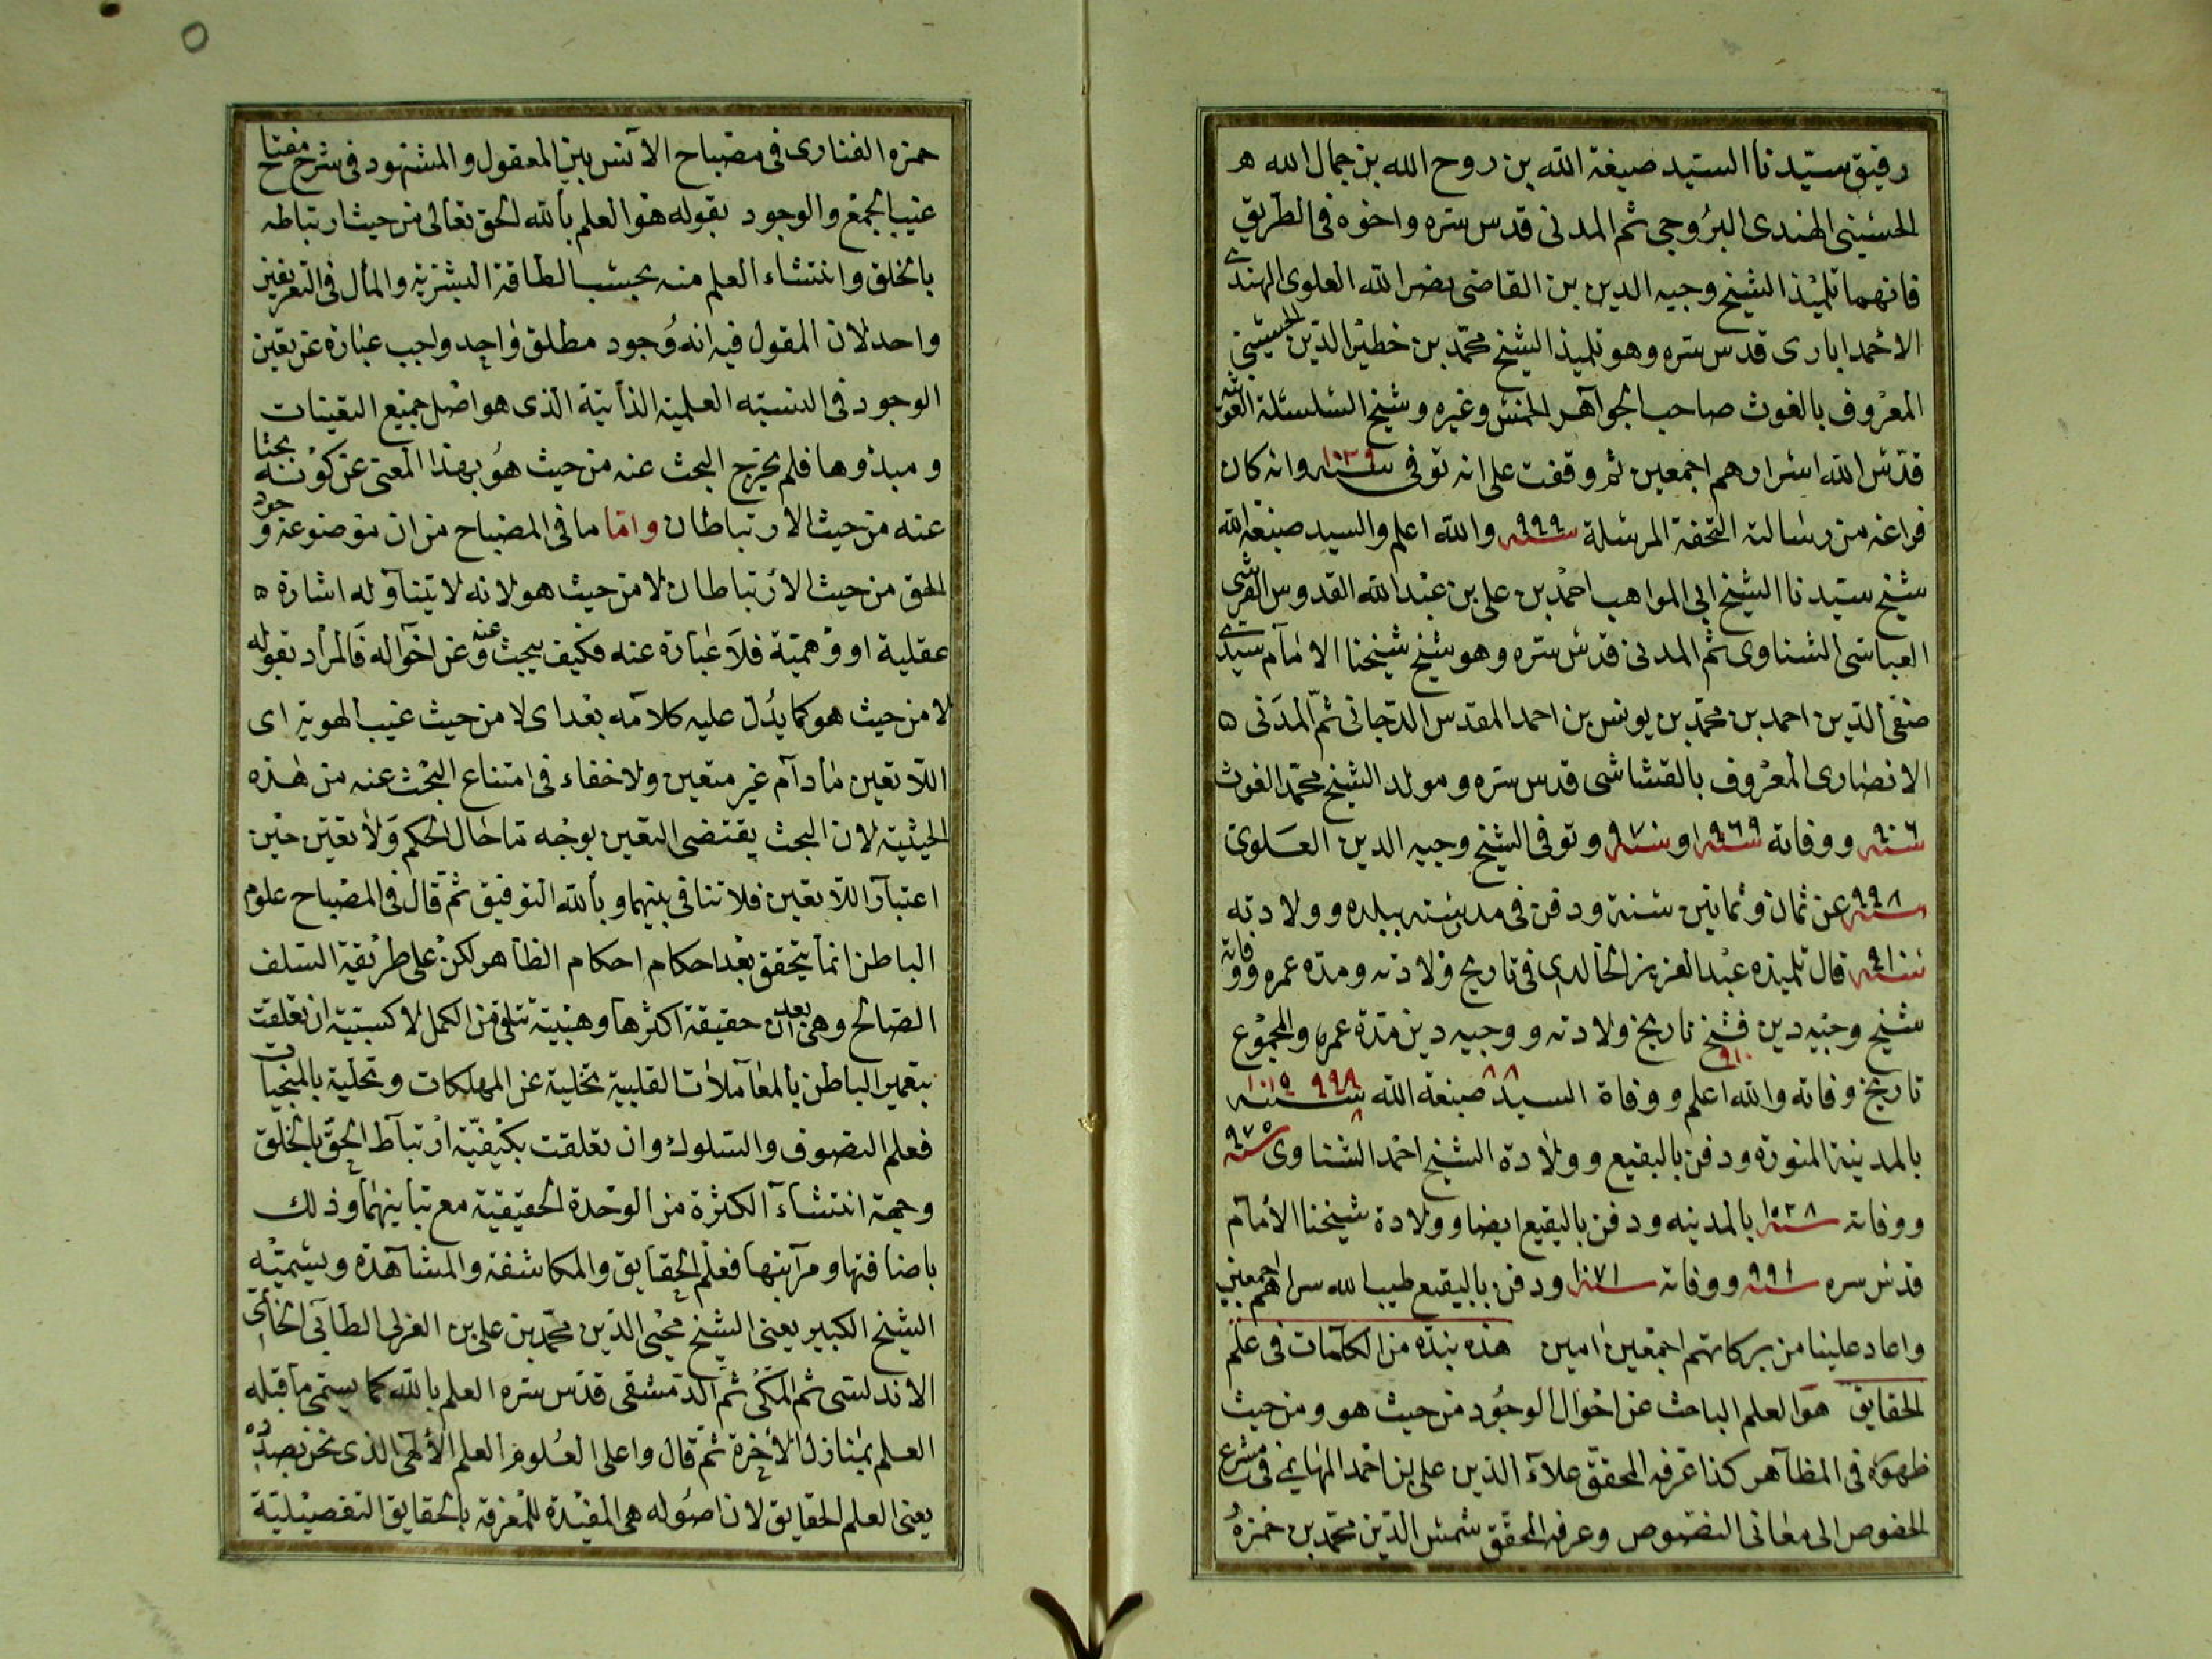 رفيق سيدنا السيد صبغة الله بن روح الله بن جمال الله
الحسيني الهندى البروجى ثم المدنى قدس سره واخوه فى الطريق
فانهما تلميذ الشيخ وجيه الدين بن القاضى نصر الله العلوى الهندى
الاحمدابارى قدس سره وهو تلميذ الشيخ محمد بن خطير الدين الحسينى
المعروف بالغوث صاحب الجواهر الخمس وغيره وشيخ السلسلة الغوثية
قدس الله اسرارهم اجمعين ثم وقفت على انه توفى سنه ١٠٢٩ وانه كان
فراغه من رسالته التحفة المرسلة سنه ٩٩٩ والله اعلم والسيد صبغة الله
شيخ سيدنا الشيخ ابى المواهب احمد بن على بن عبد الله القدوس القرشى
العباسى الشناوى ثم المدنى قدس سره وهو شيخ شيخنا الامام سيدى
صفى الدين احمد بن محمد بن يونس بن احمد المقدس الدجانى ثم المدنى
الانصارى المعروف بالقشاشى قدس سره ومولد الشيخ محمد الغوث
سنه ٩٠٦ ووفاته سنه ٩٦٩ او سنه ٩٧٠ وتوفى الشيخ وجيه الدين العلوى
سنه ٩٩٨ عن ثمان وثمانين سنة ودفن فى مدينته ببلده وولادته
سنه ٩١٠ قال تلميذه عبد العزيز الخالدى فى تاريخ ولادته ومده عمره ووفاته
شيخ وجيه دين فشخ تاريخ ولادته ووجيه دين مدة عمره والمجموع
٩١٠
تاريخ وفاته والله اعلم ووفاة السيد صبغة الله سنه ١٠١٥
٨٨ ٩٩٨
بالمدينة المنوره ودفن بالبقيع وولادة الشيخ احمد الشناوى سنه ٩٧٥
ووفاته سنه ١٠٢٨ بالمدينه ودفن بالبقيع ايضا وولادة شيخنا الامام
قدس سره سنه ٩٩١ ووفاته سنه ١٠٧١ ودفن بالبقيع طيب الله سراهم اجمعين
واعاد علينا من بركاتهم اجمعين امين هذه نبذه من الكلمات فى علم
الحقايق هو العلم الباحث عن احوال الوجود من حيث هو ومن حيث
ظهوره فى المظاهر كذا عرفه المحقق علاء الدين على بن احمد المهايمى فى مشرع
الخصوص الى معانى النصوص وعرفه المحقق شمس الدين محمد بن حمزه
حمزه الفنارى فى مصباح الانس بين المعقول والمشهود فى شرح مفتاح
غيب الجمع والوجود بقوله هو العلم بالله الحق تعالى من حيث ارتباطه
بالخلق وانتشاء العلم منه بحسب الطاقة البشرية والمأل فى التعريفين
واحد لان المقول فيه انه وجود مطلق واحد واجب عبارة عن تعين
الوجود فى النسبته العلمية الذاتية الذى هو اصل جميع التعينات
ومبدؤها فلم يخرج البحث عنه من حيث هو بهذا المعنى عن كونه بحثا
عنه من حيث الارتباطان واما ما فى المصباح من ان موضوعه وجود
الحق من حيث الارتباطان لا من حيث هو لانه لا يتناوله اشارة
عقلية او وهمية فلا عبارة عنه فكيف يبحث عنه وعن احواله فالمراد بقوله
لا من حيث هو كما يدل عليه كلامه بعد اى لا من حيث غيب الهوية اى
اللا تعين مادام غير متعين ولا خفاء فى امتناع البحث عنه من هذه
الحيثية لان البحث يقتضى التعين بوجه ما حال الحكم ولا تعين حين
اعتبار اللا تعين فلا تنافى بينهما وبالله التوفيق ثم قال فى المصباح علوم
الباطن انما يتحقق بعد احكام احكام الظاهر لكن على طريقة السلف
الصالح وهى بعد ان حقيقة اكثرها وهبية تتلقى من الكمل لا كسبية ان تعلقت
بتعمير الباطن بالمعاملات القلبية تخلية عن المهلكات وتحلية بالمنجيات
فعلم التصوف والسلوك وان تعلقت بكيفية ارتباط الحق بالخلق
وجهة انتشاء الكثرة من الوحدة الحقيقية مع تباينهما وذلك
باضافتها ومراتبها فعلم الحقايق والمكاشفة والمشاهدة ويسميه
الشيخ الكبير يعنى الشيخ محيى الدين محمد بن على بن العربى الطائى الحاتمى
الاندلسى ثم المكى ثم الدمشقى قدس سره العلم بالله كما يسمى ما قبله
العلم بمنازل الاخرة ثم قال واعلى العلوم العلم الالهى الذى نحن بصدده
يعنى العلم الحقايق لان اصوله هى المفيدة للمعرفة بالحقايق التفصيلية